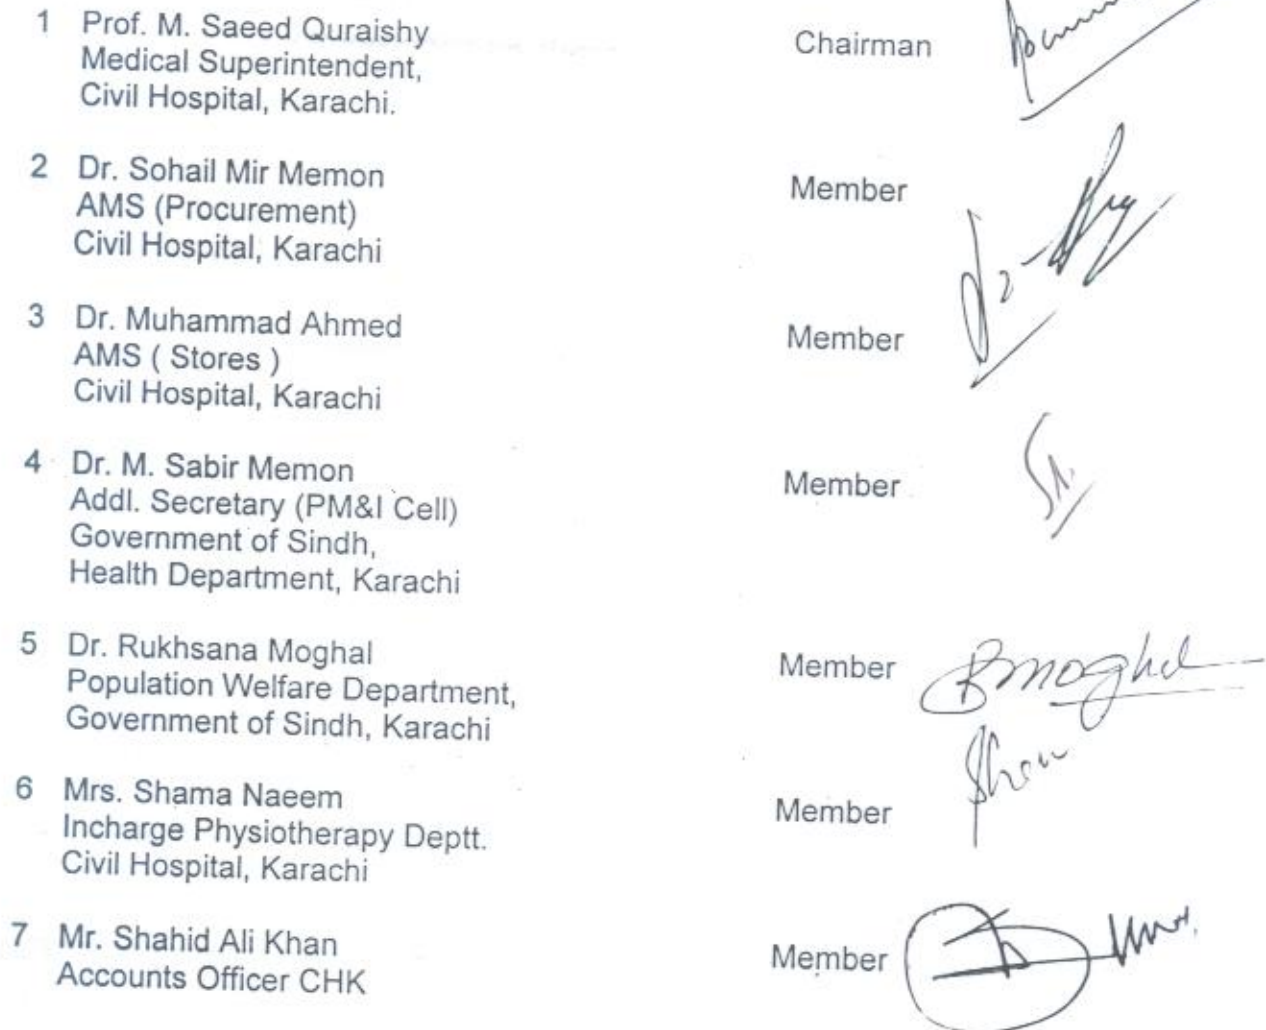 1 Prof. M. Saeed Quraishy
Medical Superintendent,
Civil Hospital, Karachi.
Chairman
2 Dr. Sohail Mir Memon
AMS (Procurement)
Civil Hospital, Karachi
Member
3 Dr. Muhammad Ahmed
AMS ( Stores )
Civil Hospital, Karachi
Member
4 Dr. M. Sabir Memon
Addl. Secretary (PM&I Cell)
Government of Sindh,
Health Department, Karachi
Member
5 Dr. Rukhsana Moghal
Population Welfare Department,
Government of Sindh, Karachi
Member
6 Mrs. Shama Naeem
Incharge Physiotherapy Deptt.
Civil Hospital, Karachi
Member
7 Mr. Shahid Ali Khan
Accounts Officer CHK
Member